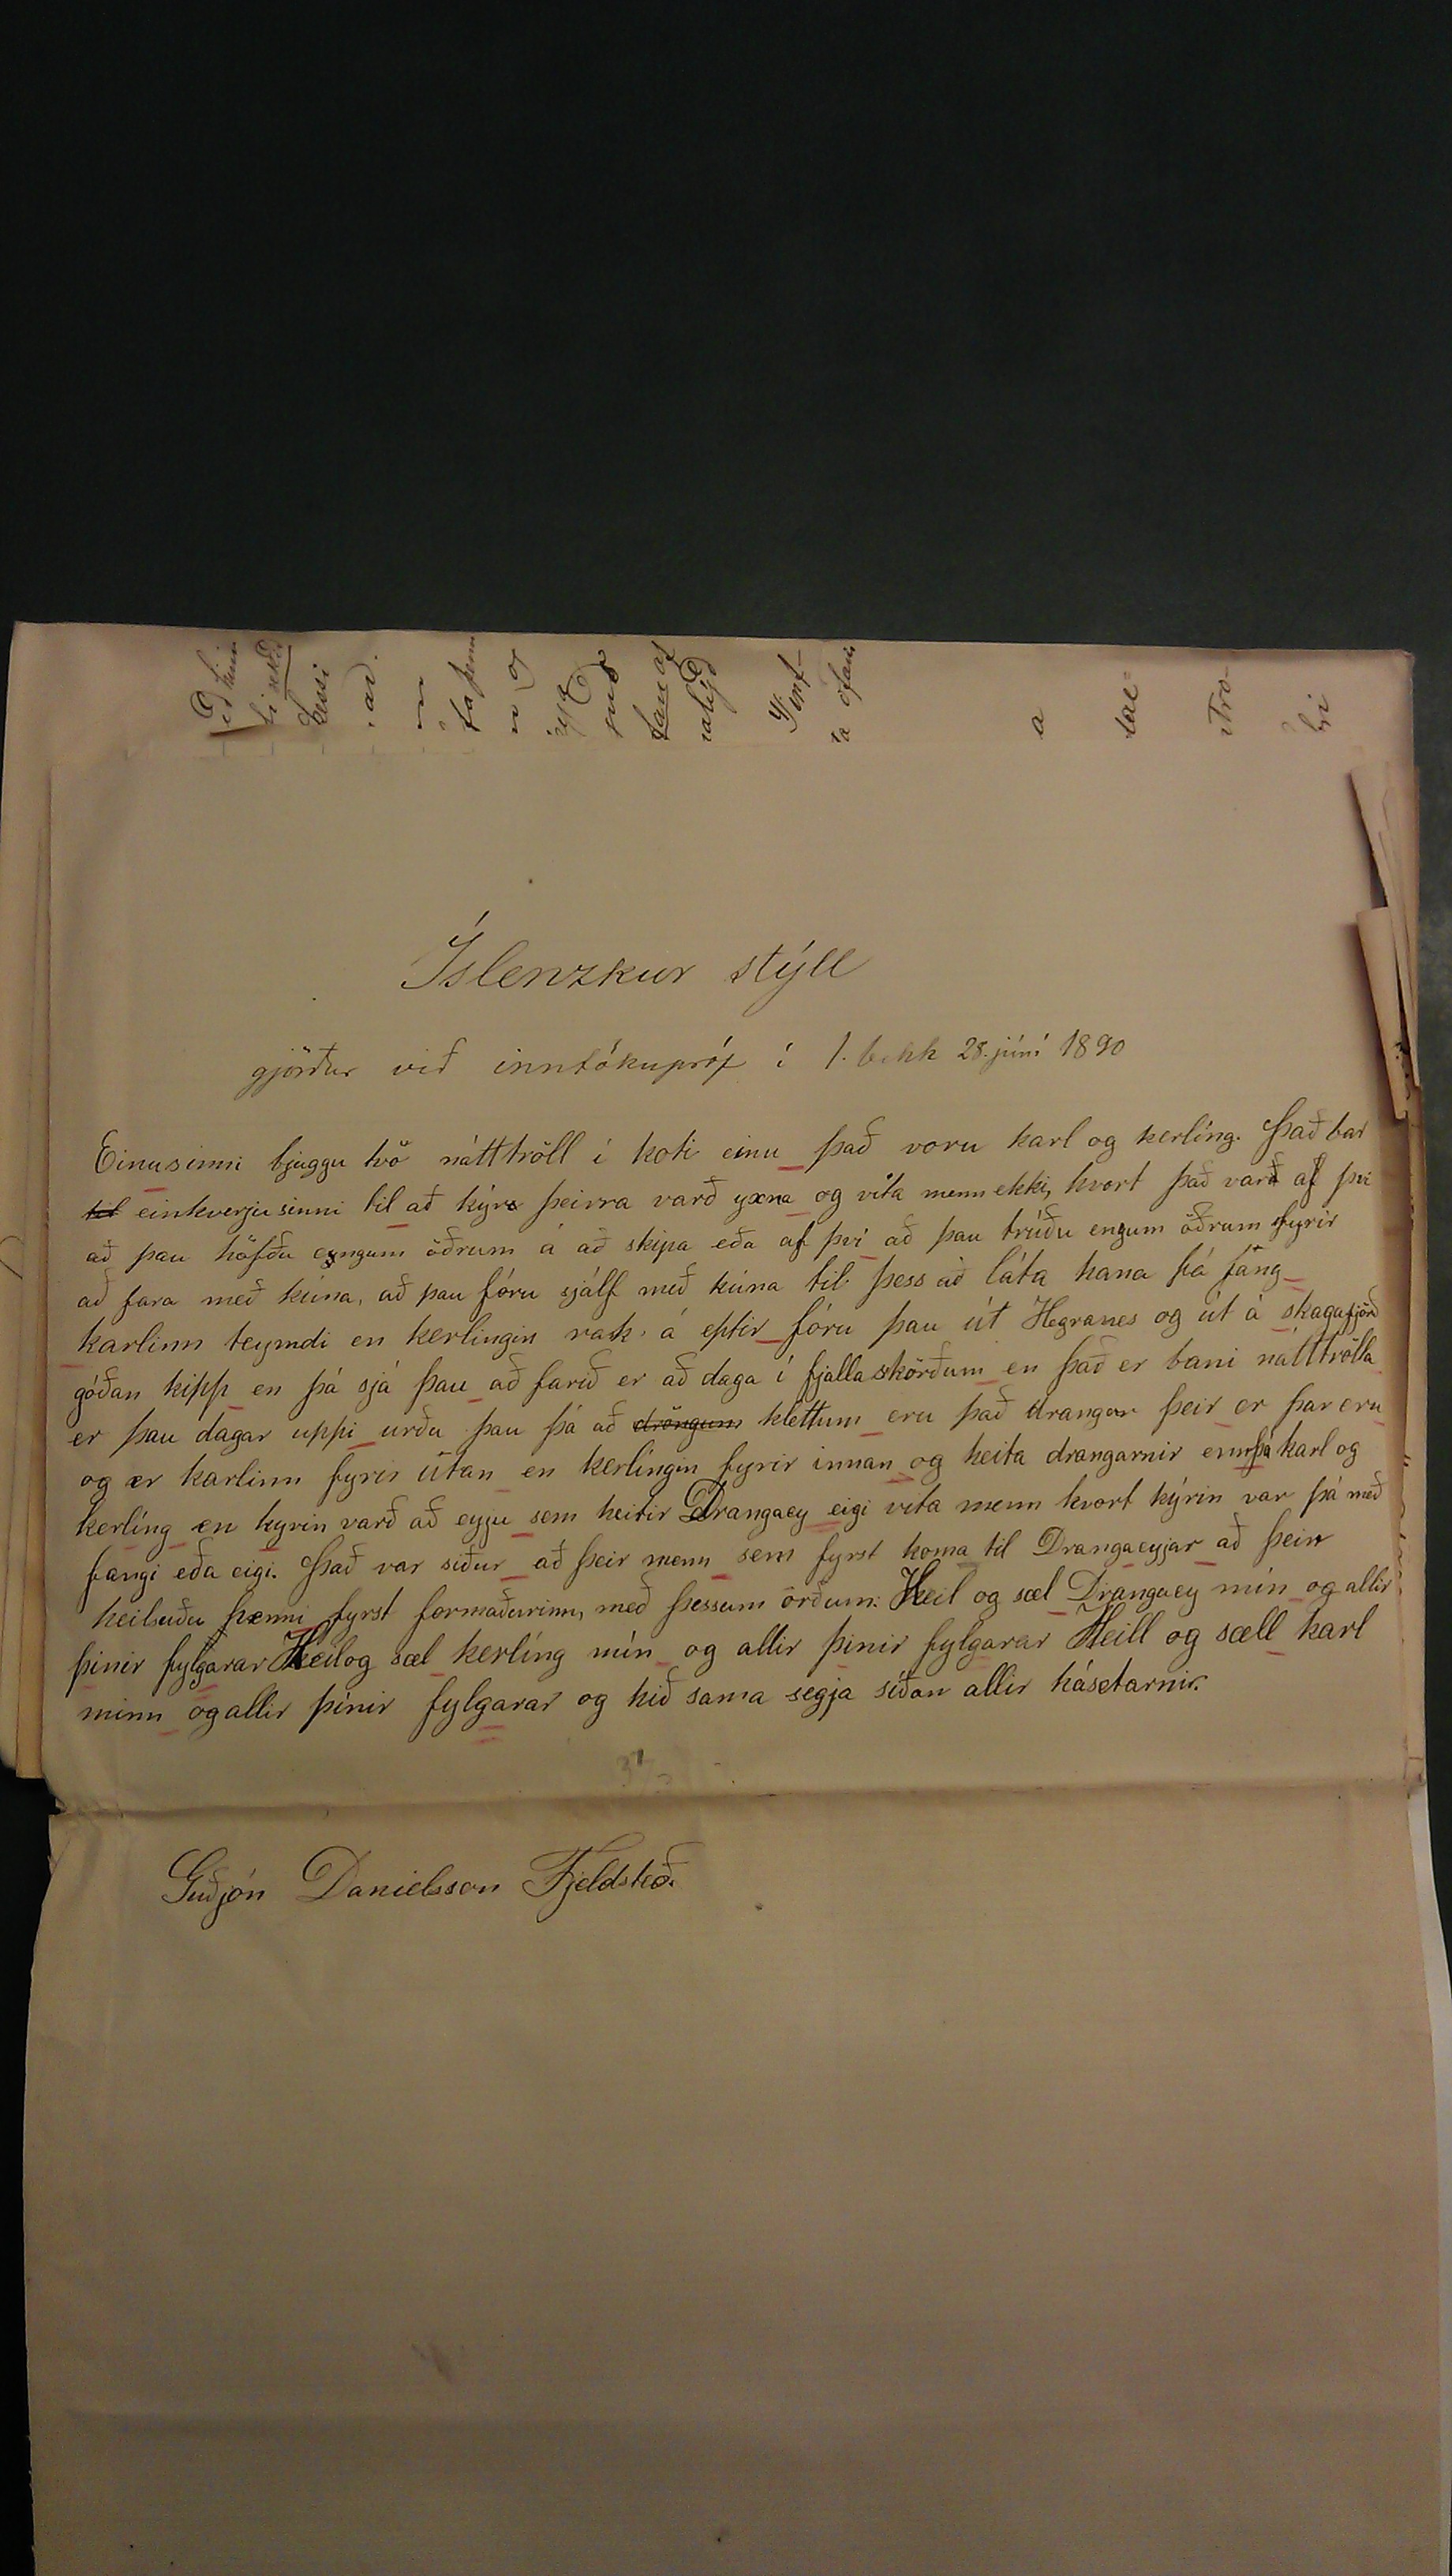 Íslenzkur stýll
gjörður við inntökupróf í 1. bekk 28. júní 1890
Einusinni bjuggu tvö nátttröll í koti einu það voru karl og kerlíng. Það bar
til einhverju sinni til að kýr þeirra varð yxna og vita menn ekki, hvort það varð af því
að þau höfðu engum öðrum á að skipa eða af því að þau trúðu engum öðrum fyrir
að fara með kúna, að þau fóru sjálf með kúna til þess að láta hana fá fáng
karlinn teymdi en kerlingin rak á eptir fóru þau út Hegranes og út á skagafjörð
góðan kipp en þá sjá þau að farið er að daga í fjallaskörðum en það er bani nátttrölla
er þau dagar uppi urðu þau þá að dröngum klettum eru það drangar þeir er þar eru
og er karlinn fyrir útan en kerlingin fyrir innan og heita drangarnir ennþá karl og
kerlíng en kyrin varð að eyju sem heitir Drangaey eigi vita menn hvort kýrin var þá með
fangi eða eigi. Það var siður að þeir menn sem fyrst koma til Drangaeyjar að þeir
heilsuðu henni fyrst formaðurinn, með þessum orðum: Heil og sæl Drangaey mín og allir
þinir fylgarar Heil og sæl kerlíng mín og allir þinir fylgarar Heill og sæll karl
minn og allir þínir fylgarar og hið sama segja síðan allir hásetarnir.
Guðjón Danielsson Fjeldsteð.